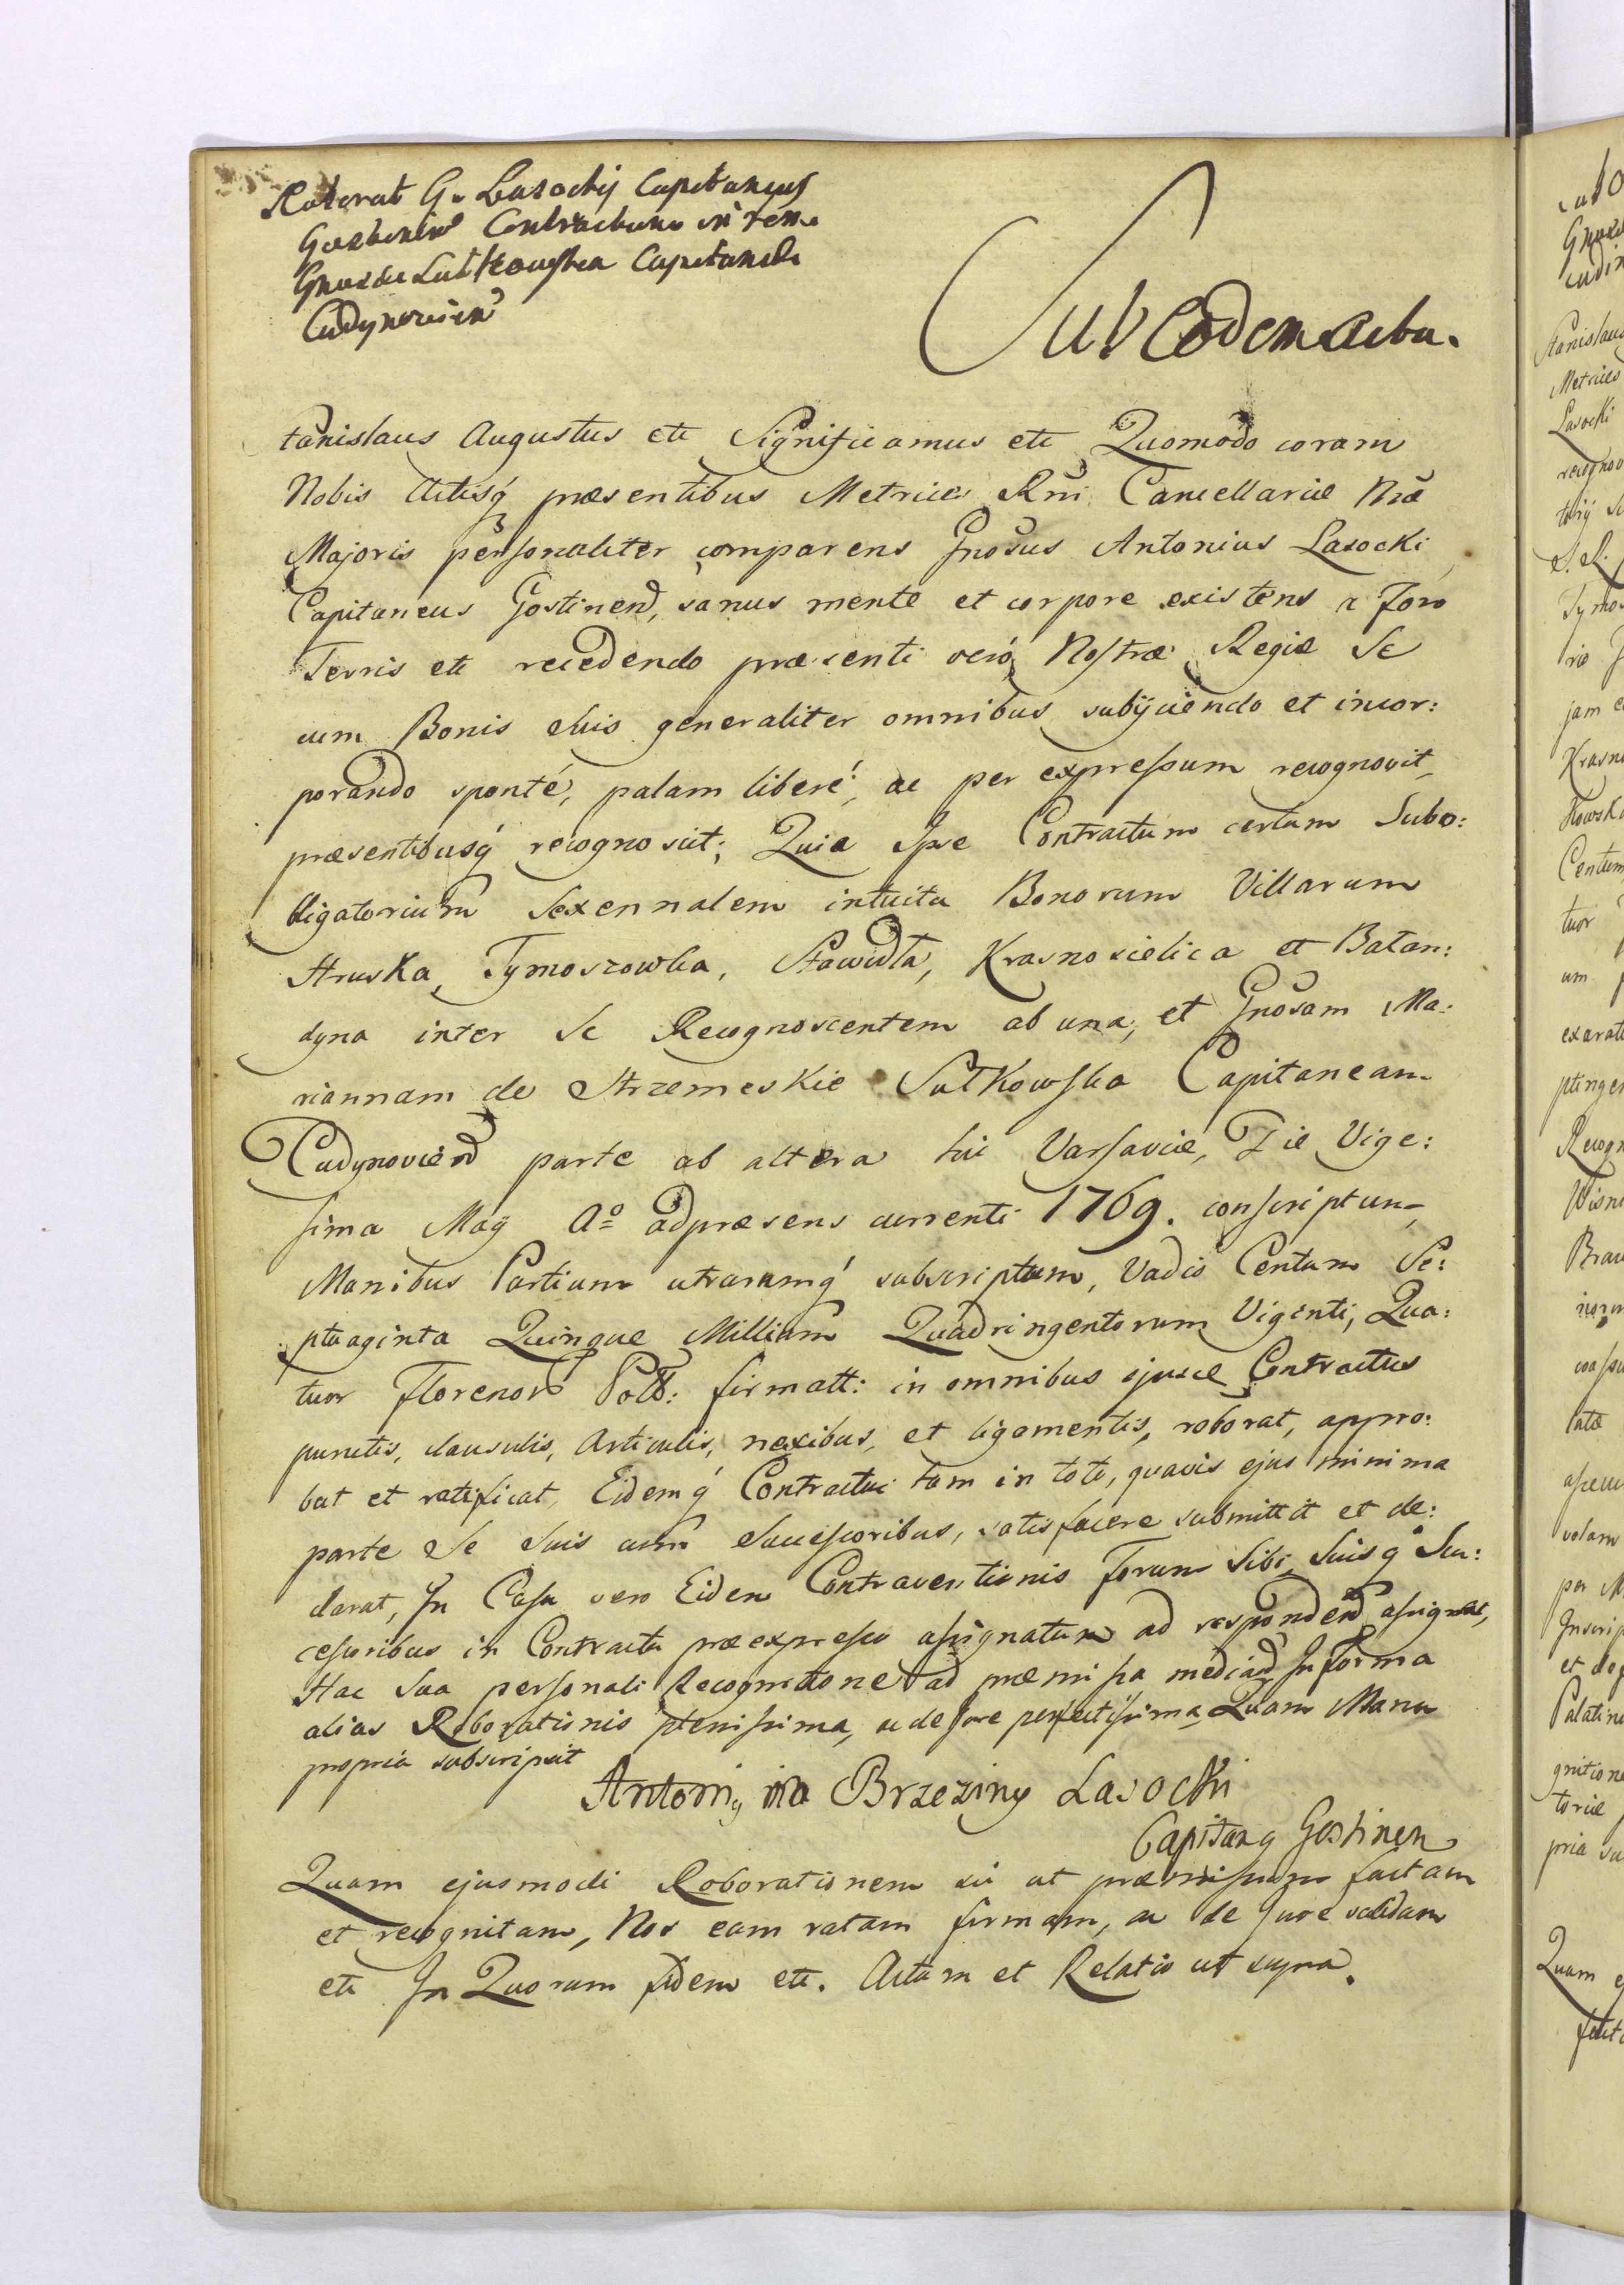 Roborat G. Lasockij Capitaneus
Gostinen Contractum in rem
Gnosae Sułkowska Capitanea
Cudynovien
Sub Eodem Actu.
Stanislaus Augustus etc Significamus etc Quomodo coram
Nobis Actisq præsentibus Metrices Rni Cancellariæ Nræ
Majoris personaliter comparens Gnosus Antonius Lasocki
Capitaneus Gostinen, sanus mente et corpore existens a Foro
Terris etc recedendo præsenti vero Nostræ Regiæ Se
cum Bonis Suis generaliter omnibus subijciendo et incor:
porando sponté, palam liberé, ac per expressum recognovit
præsentibusq recognoscit; Quia Ipse Contractum certum Subo:
bligatorium Sexennalem intuitu Bonorum Villarum
Hruska, Tymoszowka, Stawidła, Krasnosielica et Bałan:
dyna inter Se Recognoscentem ab una, et Gnosam Ma:
riannam de Strzemeskie Sułkowska Capitaneam
Cudynovien parte ab altera hic Varsaviæ, Die Vige:
sima Maij Aº adpræsens currenti 1769. conscriptum,
Manibus Partium utrarumq subscriptum, Vadio Centum Se:
ptuaginta Quinque Millium Quadringentorum Viginti, Qua:
tuor Florenor Poll: firmatt: in omnibus ejusce Contractus
punctis, clausulis, Articulis, nexibus, et ligamentis, roborat, appro:
bat et ratificat, Eidemq Contractui tam in toto, quavis ejus minima
parte Se Suis cum Successoribus, satisfacere submittit et de:
clarat, In Casu vero Eidem Contraventionis Forum Sibi, Suisq Suc:
cessoribus in Contractu præexpresso assignatum ad responden assignat,
Hac Sua personali Recognitione ad præmissa median In forma
alias Roborationis plenissima, ac de Jure perfectissima, Quam Manu
propria subscripsit
Antoni, na Brzeziny Lasocki
Capitang Gostinen
Quam ejusmodi Roborationem sic ut præmissum factam
et recognitam, Nos eam ratam firmam, ac de Jure validam
etc In Quorum fidem etc. Actum et Relatio ut supra.